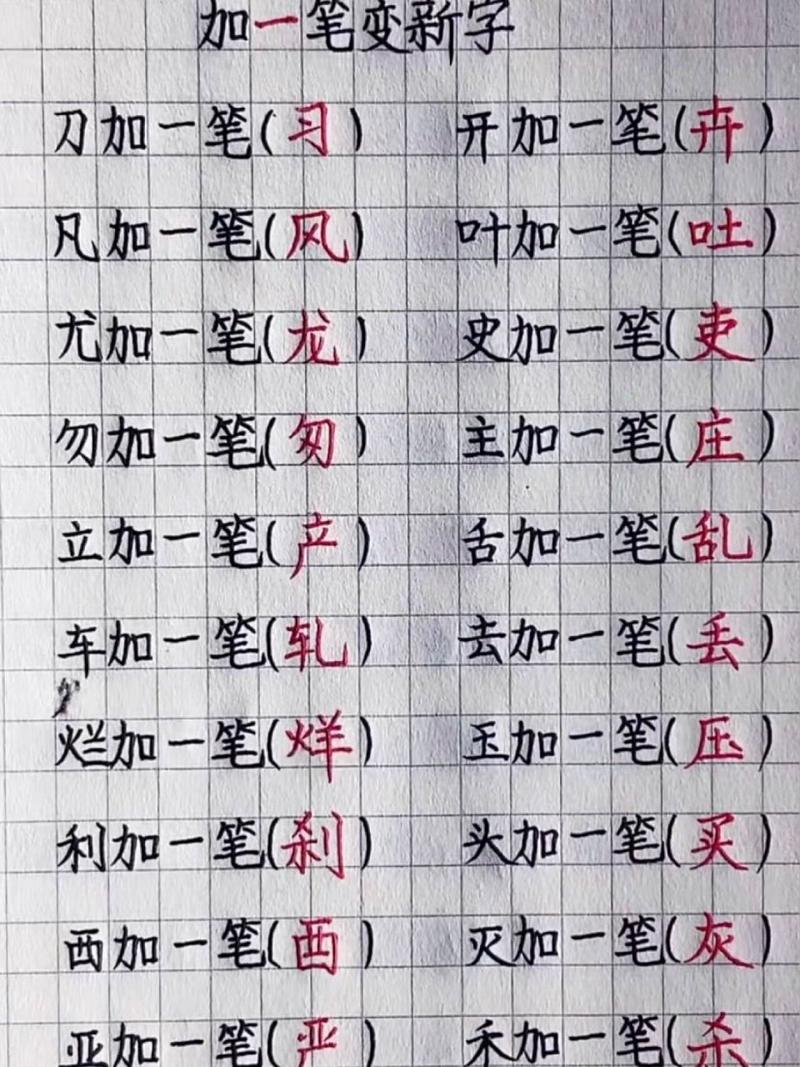 加一笔变新字
刀加一笔(习) 开加一笔(卉)
凡加一笔(风) 叶加一笔(吐)
尤加一笔(龙) 史加一笔(吏)
勿加一笔(匆) 主加一笔(庄)
立加一笔(产) 舌加一笔(乱)
车加一笔(轧) 去加一笔(丢)
烂加一笔(烊) 玉加一笔(压)
利加一笔(刹) 头加一笔(买)
西加一笔(酉) 灭加一笔(灰)
亚加一笔(严) 禾加一笔(杀)